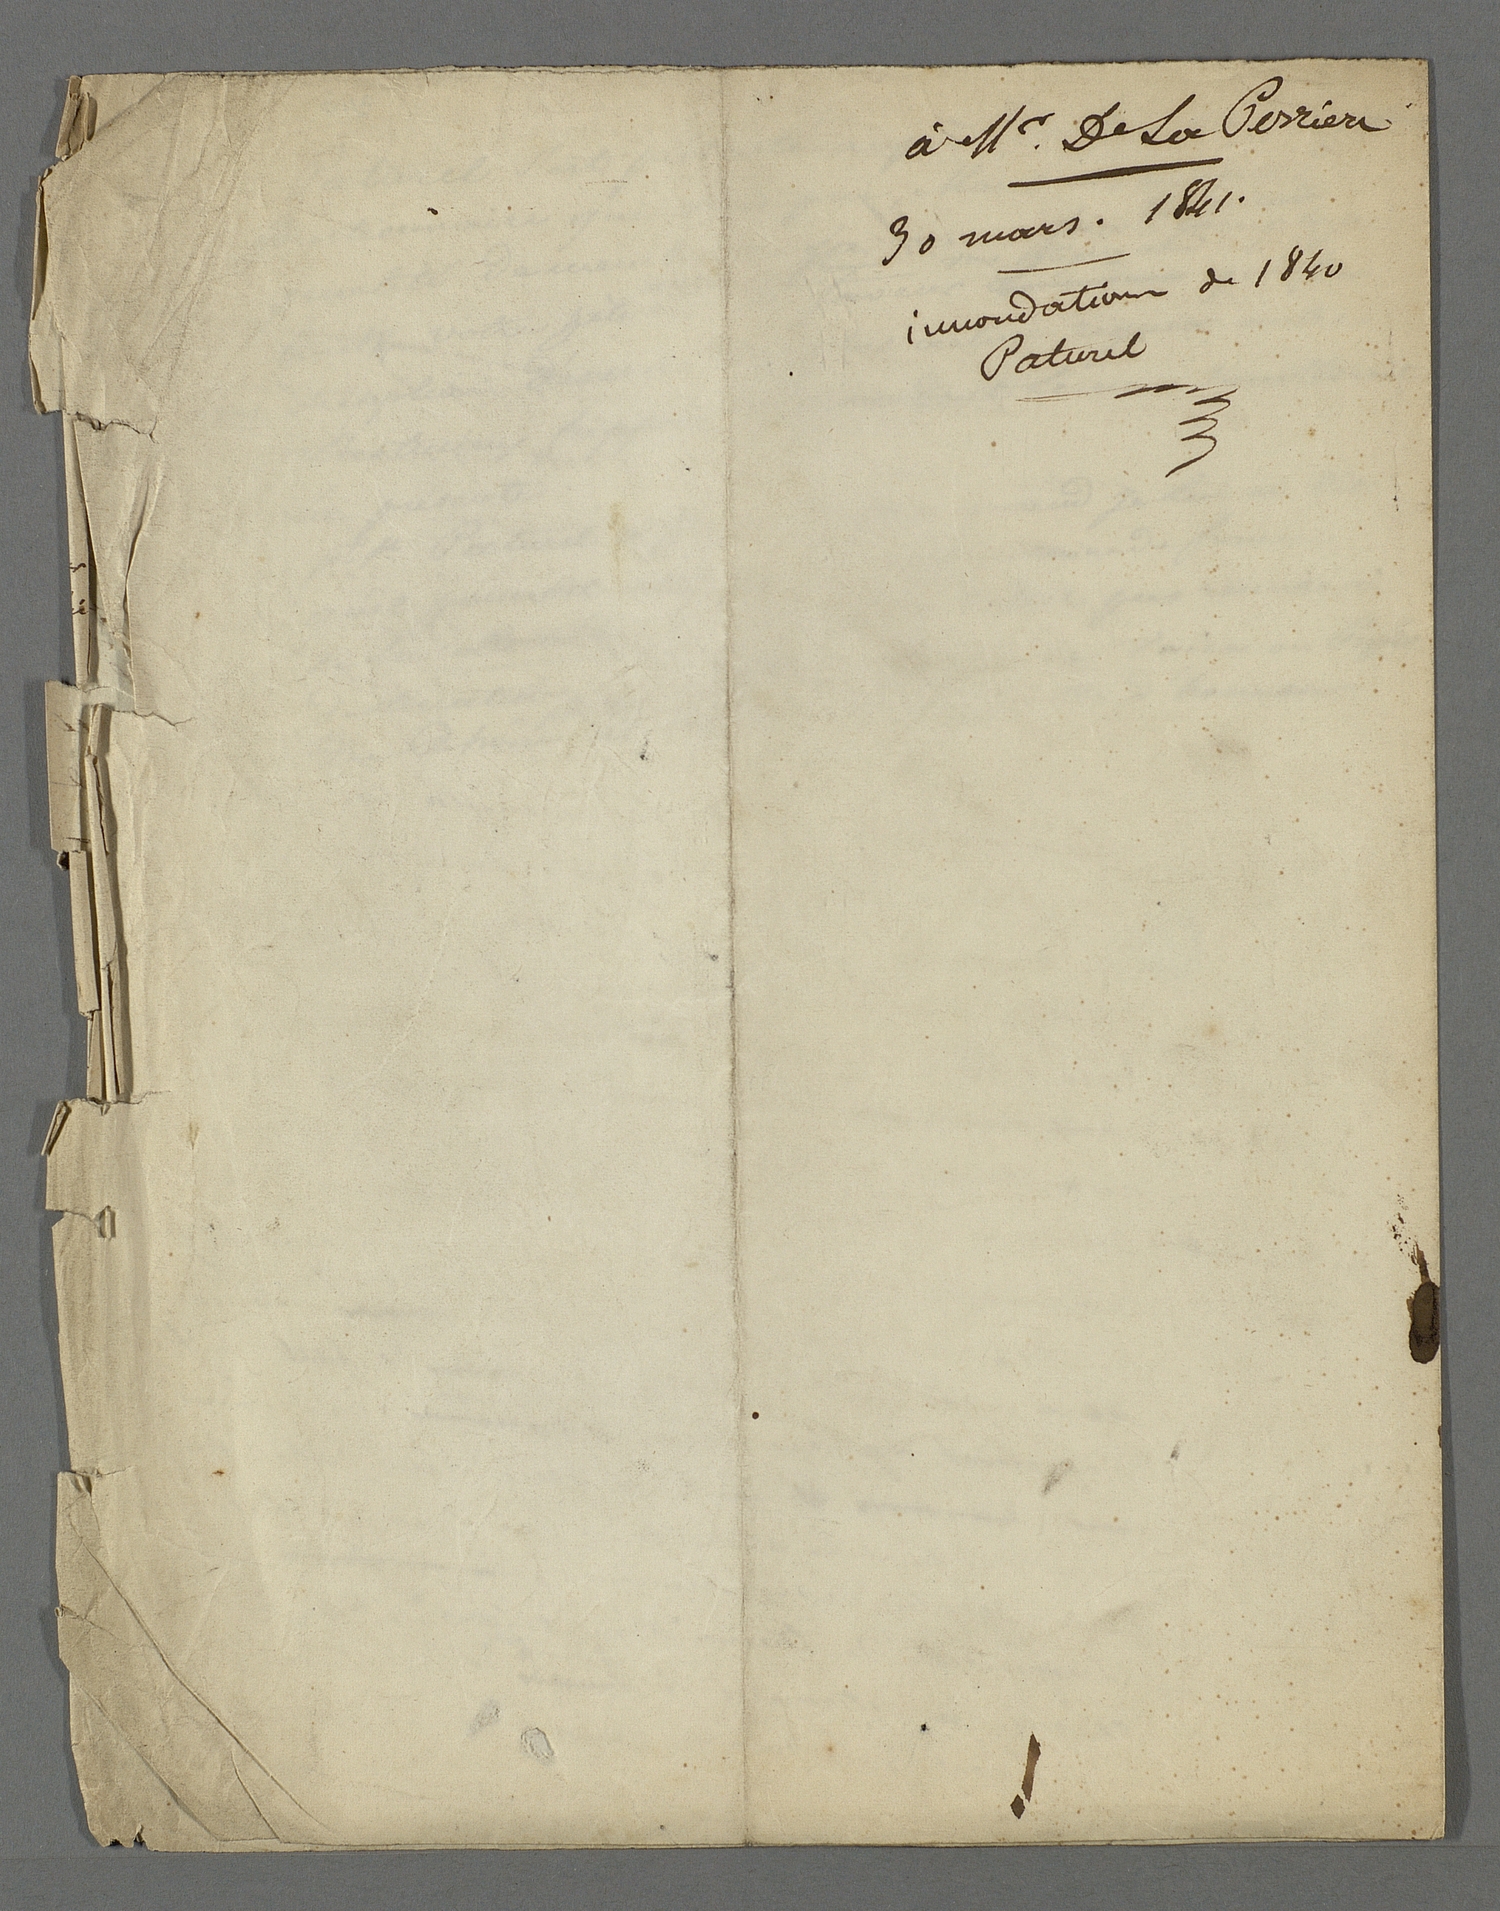 à Mr. De La Perriere
30 mars. 1841.
innondation de 1840
Paturel